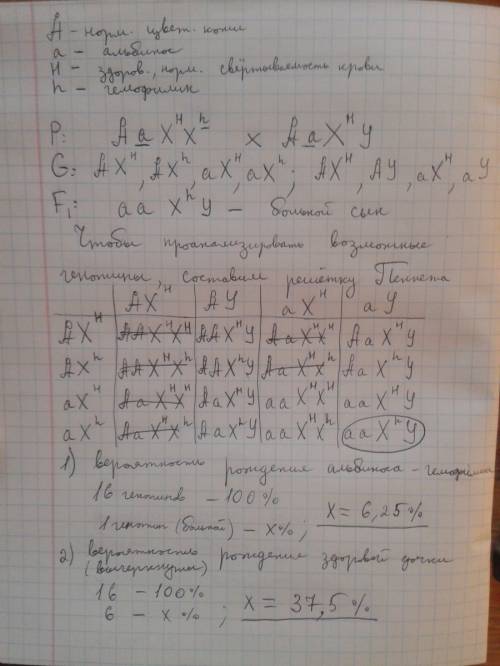 A – норм. цвет. кожи
a – альбинос
H – здоров., норм. свёртываемость крови
h – гемофилик
P: A a X^H X^h × A a X^H Y
G: AX^H, AX^h, aX^H, aX^h; AX^H, AY, aX^H, aY
F₁: aa X^h Y – больной сын
Чтобы проанализировать возможные
генотипы, составим решётку Пеннета
AX^H | AY | aX^H | aY
AX^H | AAX^HX^H | AAX^HY | AaX^HX^H | AaX^HY
AX^h | AAX^HX^h | AAX^hY | AaX^HX^h | AaX^hY
aX^H | AaX^HX^H | AaX^HY | aaX^HX^H | aaX^HY
aX^h | AaX^HX^h | AaX^hY | aaX^HX^h | aaX^hY
1) вероятность рождение альбиноса-гемофилика
16 генотипов – 100%
1 генотип (больной) – x%; x = 6,25%
2) вероятность рождение здоровой дочки
(вычеркнуты)
16 – 100%
6 – x%; x = 37,5%